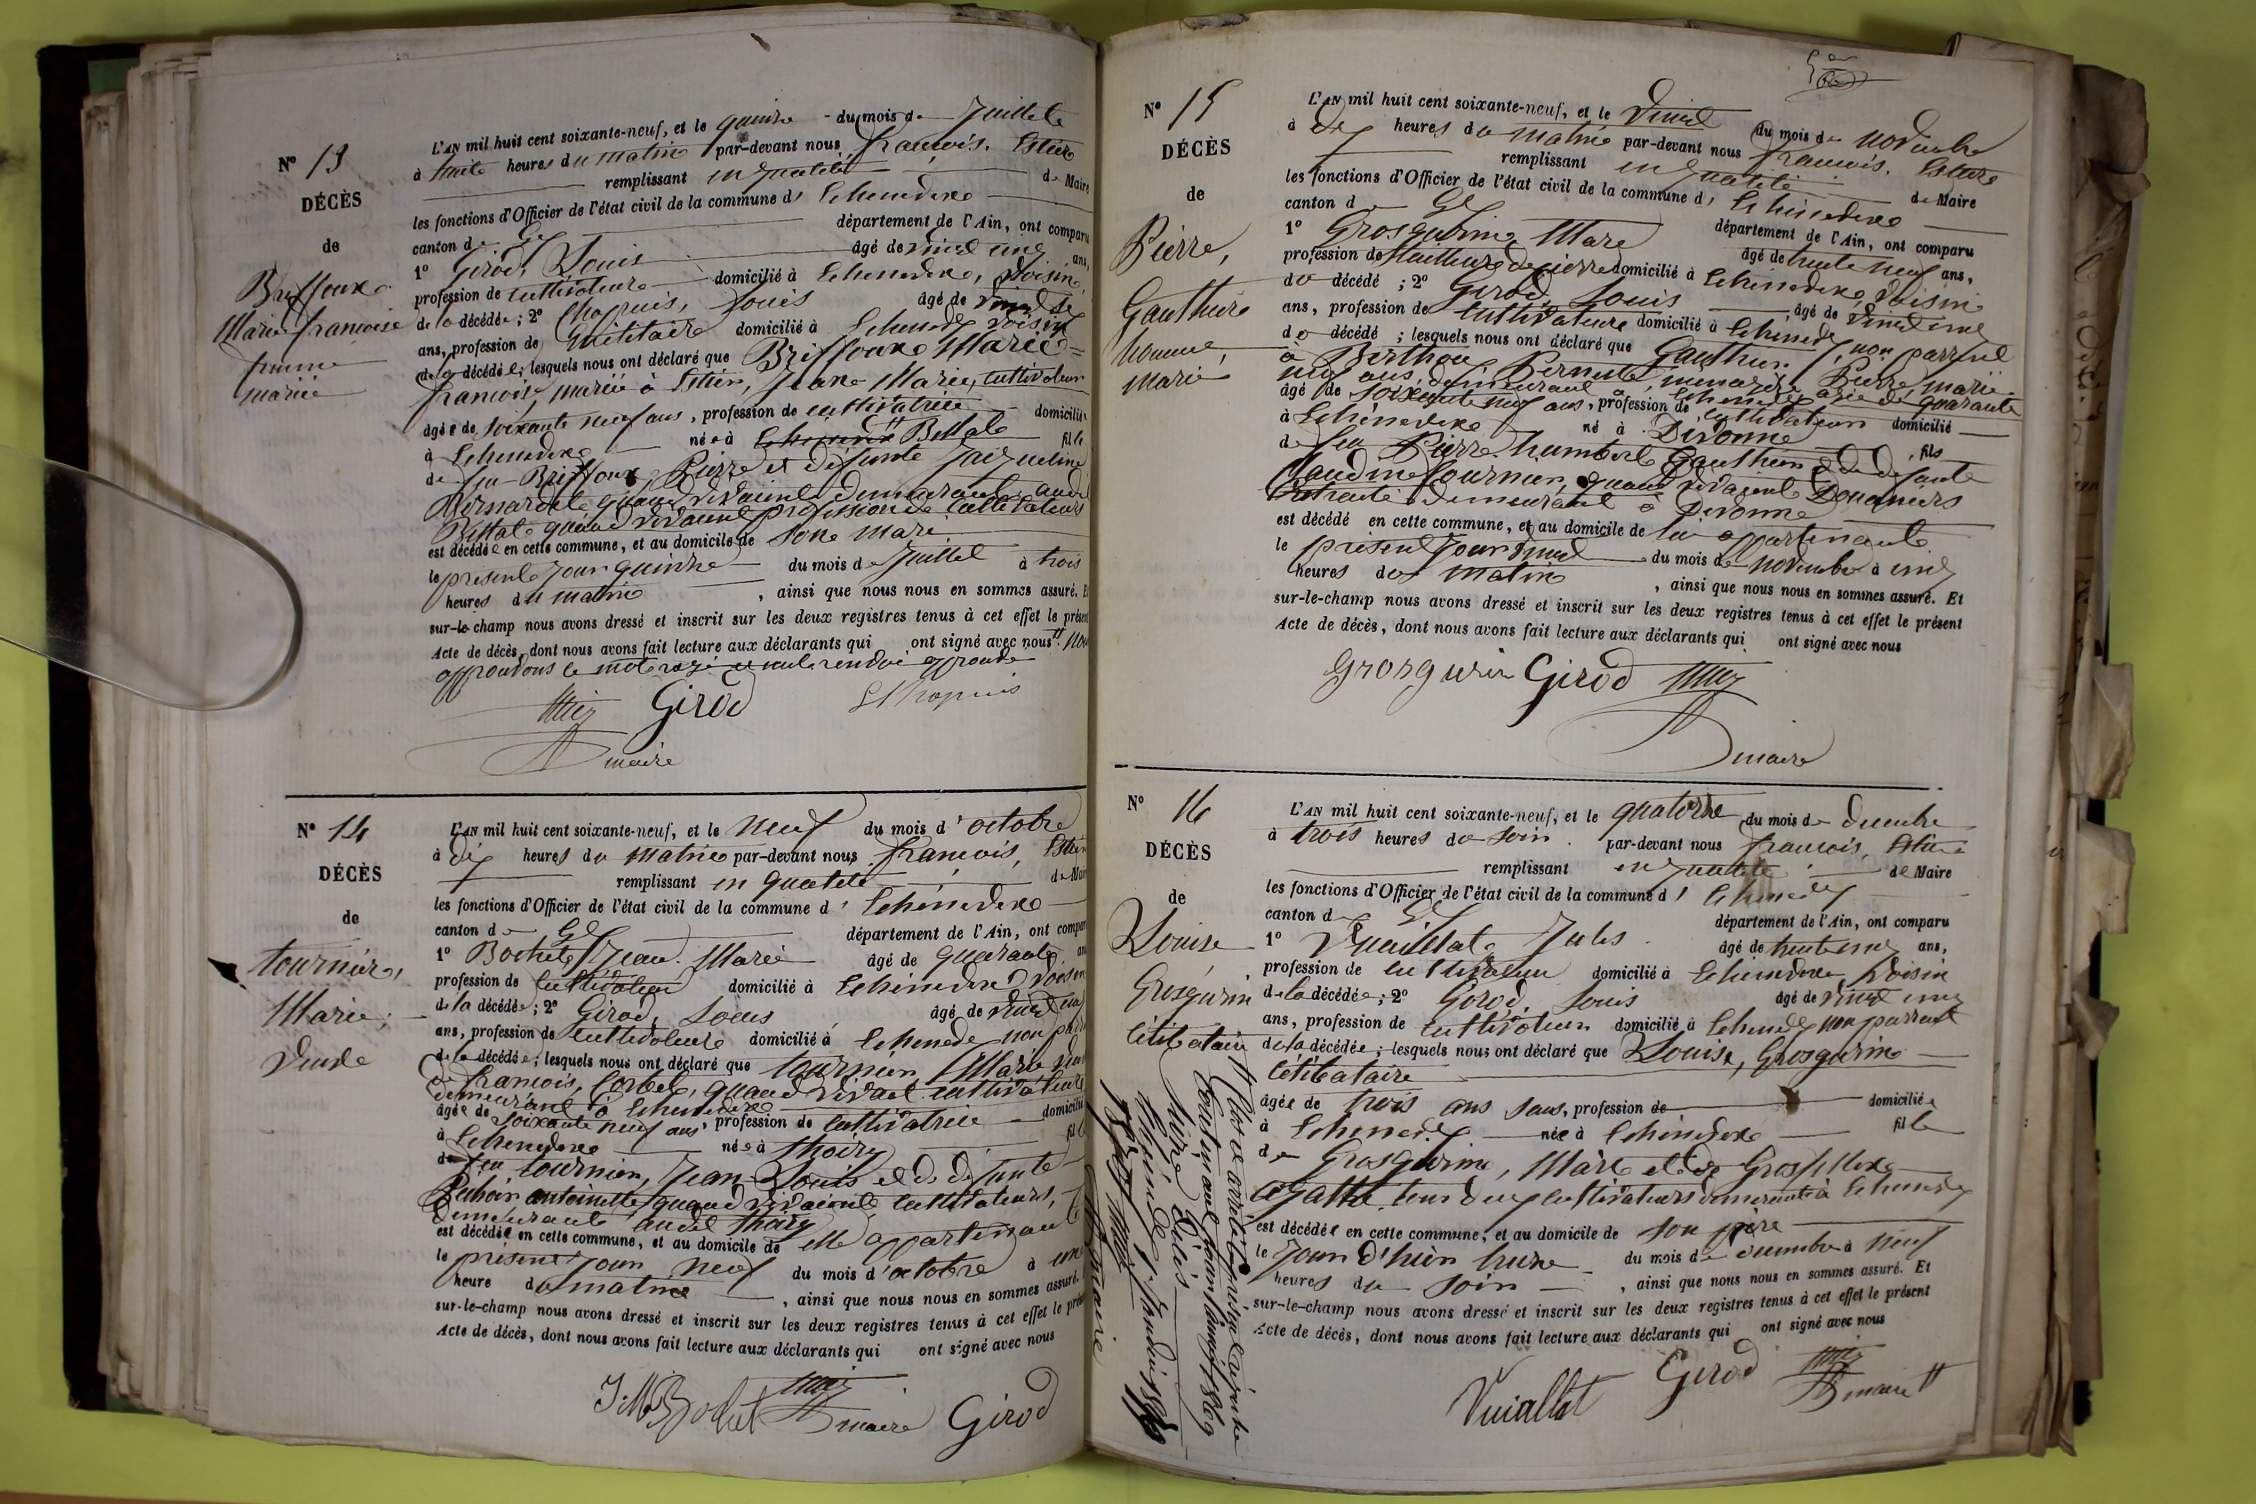 N° 13
DÉCÈS
de
Briffoux
Marie françoise
femme
mariée
L'AN mil huit cent soixante-neuf, et le quinze du mois de Juillet
à huit heures du matin par-devant nous françois. Estier
remplissant en qualité de Maire
les fonctions d'Officier de l'état civil de la commune d' Echenevex
canton de Gex département de l'Ain, ont comparu
1° Girod, Louis âgé de vingt cinq ans,
profession de cultivateur domicilié à Echenevex, voisin
de la décédée ; 2° Chapuis, Louis âgé de vingt six
ans, profession de Militaire domicilié à Echenevex voisin
de la décédée ; lesquels nous ont déclaré que Briffoux Marie
françoise, mariée à Estier, Jean Marie, cultivateur
âgée de soixante neuf ans, profession de cultivatrice domiciliée
à Echenevex née à Echenevex Bettale fille
de feu Briffoux Pierre et défunte Jacqueline
Bernardet quand vivaient demeurants audit
Bettale quand vivaient profession de cultivateurs
est décédée en cette commune, et au domicile de son mari
le présent jour quinze du mois de Juillet à trois
heures du matin, ainsi que nous nous en sommes assuré. Et
sur-le-champ nous avons dressé et inscrit sur les deux registres tenus à cet effet le présent
Acte de décès, dont nous avons fait lecture aux déclarants qui ont signé avec nous. Nous
approuvons le mot rayé et nul renvoi approuvé
Girod
L Chapuis
maire
N° 14
DÉCÈS
de
tournier,
Marie,
veuve
L'AN mil huit cent soixante-neuf, et le neuf du mois d'octobre
à dix heures du matin par-devant nous françois, Estier
remplissant en qualité de Maire
les fonctions d'Officier de l'état civil de la commune d' Echenevex
canton de Gex département de l'Ain, ont comparu
1° Bochet Jean. Marie âgé de quarante ans
profession de cultivateur domicilié à Echenevex voisin
de la décédée ; 2° Girod, Louis âgé de vingt cinq
ans, profession de cultivateur domicilié à Echenevex non parent
de la décédée ; lesquels nous ont déclaré que tournier Marie veuve
de françois, Corbet, quand vivait cultivateur
demeurant à Echenevex
âgée de soixante neuf ans, profession de cultivatrice domiciliée
à Echenevex née à thoiry fille
de feu tournier, Jean Louis et de défunte
antoinette quand vivaient cultivateurs,
demeurants audit thoiry
est décédée en cette commune, et au domicile de elle appartenant
le présent jour neuf du mois d'octobre à une
heure du matin, ainsi que nous nous en sommes assuré.
sur-le-champ nous avons dressé et inscrit sur les deux registres tenus à cet effet le présent
Acte de décès, dont nous avons fait lecture aux déclarants qui ont signé avec nous
J. M. Bochet
maire
Girod
N° 15
DÉCÈS
de
Pierre,
Gauthier
homme,
marié
L'AN mil huit cent soixante-neuf, et le vingt du mois de novembre
à dix heures du matin par-devant nous françois. Estier
remplissant en qualité de Maire
les fonctions d'Officier de l'état civil de la commune d' Echenevex
canton de Gex département de l'Ain, ont comparu
1° Grosgurin, Marc âgé de trente neuf ans,
profession de tailleur de pierre domicilié à Echenevex, voisin
du décédé ; 2° Girod, Louis âgé de vingt cinq
ans, profession de cultivateur domicilié à Echenevex, non parent
du décédé ; lesquels nous ont déclaré que Gauthier, Pierre, marié
à Berthou Pernette, ménagère âgée de quarante
neuf ans, demeurant à Echenevex
âgé de soixante neuf ans, profession de cultivateur domicilié
à Echenevex né à Divonne fils
de feu Pierre humbert Gauthier et de défunte
Claudine fournier, quand vivaient Douaniers
retraité demeurant à Divonne
est décédé en cette commune, et au domicile de lui appartenant
le présent jour vingt du mois de novembre à cinq
heures du matin, ainsi que nous nous en sommes assuré. Et
sur-le-champ nous avons dressé et inscrit sur les deux registres tenus à cet effet le présent
Acte de décès, dont nous avons fait lecture aux déclarants qui ont signé avec nous
Grosgurin Girod
maire
N° 16
DÉCÈS
de
Louise
Grosgurin
célibataire
L'AN mil huit cent soixante-neuf, et le quatorze du mois de décembre
à trois heures du soir par-devant nous francois, Estier
remplissant en qualité de Maire
les fonctions d'Officier de l'état civil de la commune d' Echenevex
canton de Gex département de l'Ain, ont comparu
1° Vuaillat Jules âgé de trente cinq ans,
profession de cultivateur domicilié à Echenevex voisin
de la décédée ; 2° Girod, Louis âgé de vingt cinq
ans, profession de cultivateur domicilié à Echenevex non parrent
de la décédée ; lesquels nous ont déclaré que Louise, Grosgurin
célibataire
âgée de trois ans sans, profession de domiciliée
à Echenevex née à Echenevex fille
de Grosgurin, Marc et de Grosfillex
agathe, tous deux cultivateurs demeurant à Echenevex
est décédée en cette commune, et au domicile de son père
le jour d'hier treize du mois de décembre à neuf
heures du soir, ainsi que nous nous en sommes assuré. Et
sur-le-champ nous avons dressé et inscrit sur les deux registres tenus à cet effet le présent
Acte de décès, dont nous avons fait lecture aux déclarants qui ont signé avec nous
Vuaillat
Girod
maire
Clos et arrêté le présent registre
contenant
seize décès
Echenevex 1er Janvier 1870
maire